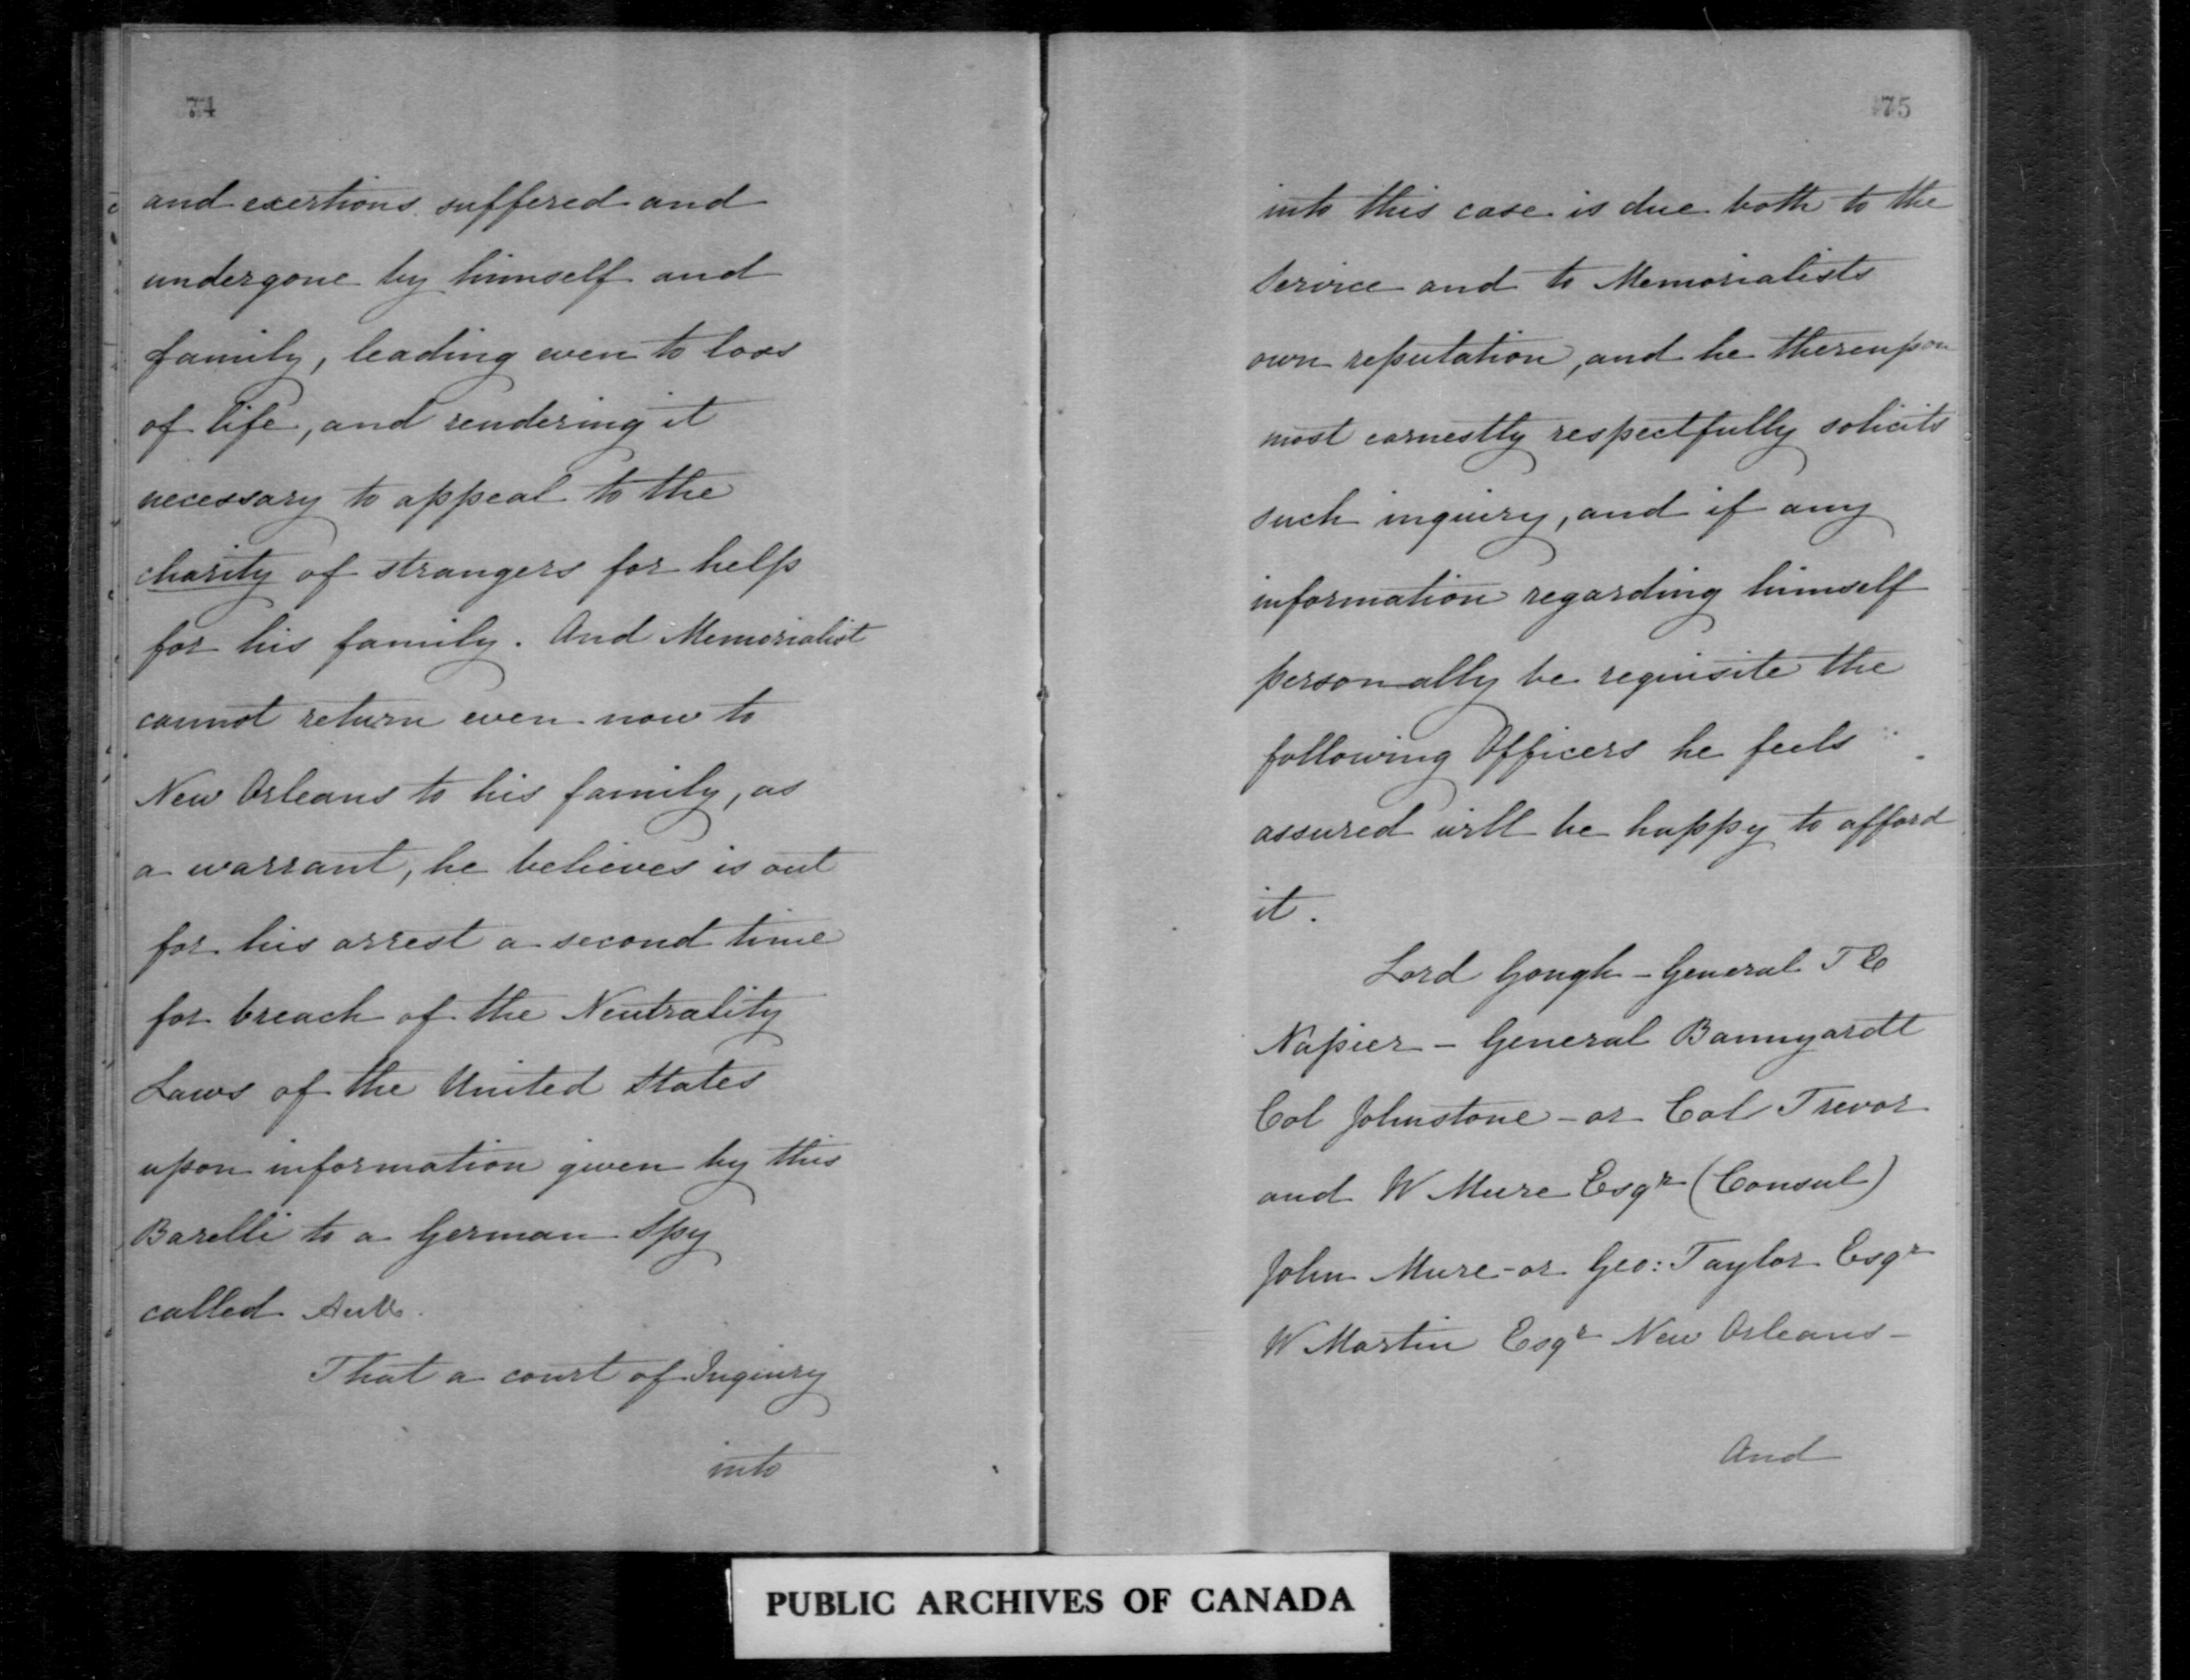 74
and exertions suffered and
undergone by himself and
family, leading even to loss
of life, and rendering it
necessary to appeal to the
charity of strangers for help
for his family. And Memorialist
cannot return even now to
New Orleans to his family, as
a warrant, he believes is out
for his arrest a second time
for breach of the Neutrality
Laws of the United States
upon information given by this
Barelli to a German Spy
called
That a court of Inquiry
into
75
into this case is due both to the
Service and to Memorialists
own reputation, and he thereupon
most earnestly respectfully solicits
such inquiry, and if any
information regarding himself
personally be requisite the
following Officers he feels
assured will be happy to afford
it.
Lord Gough - General T C
Napier - General
Col Johnstone - or Col Trevor
and W Mure Esqr (Consul)
John Mure - or Geo: Taylor Esqr
W Martin Esqr New Orleans -
And
PUBLIC ARCHIVES OF CANADA